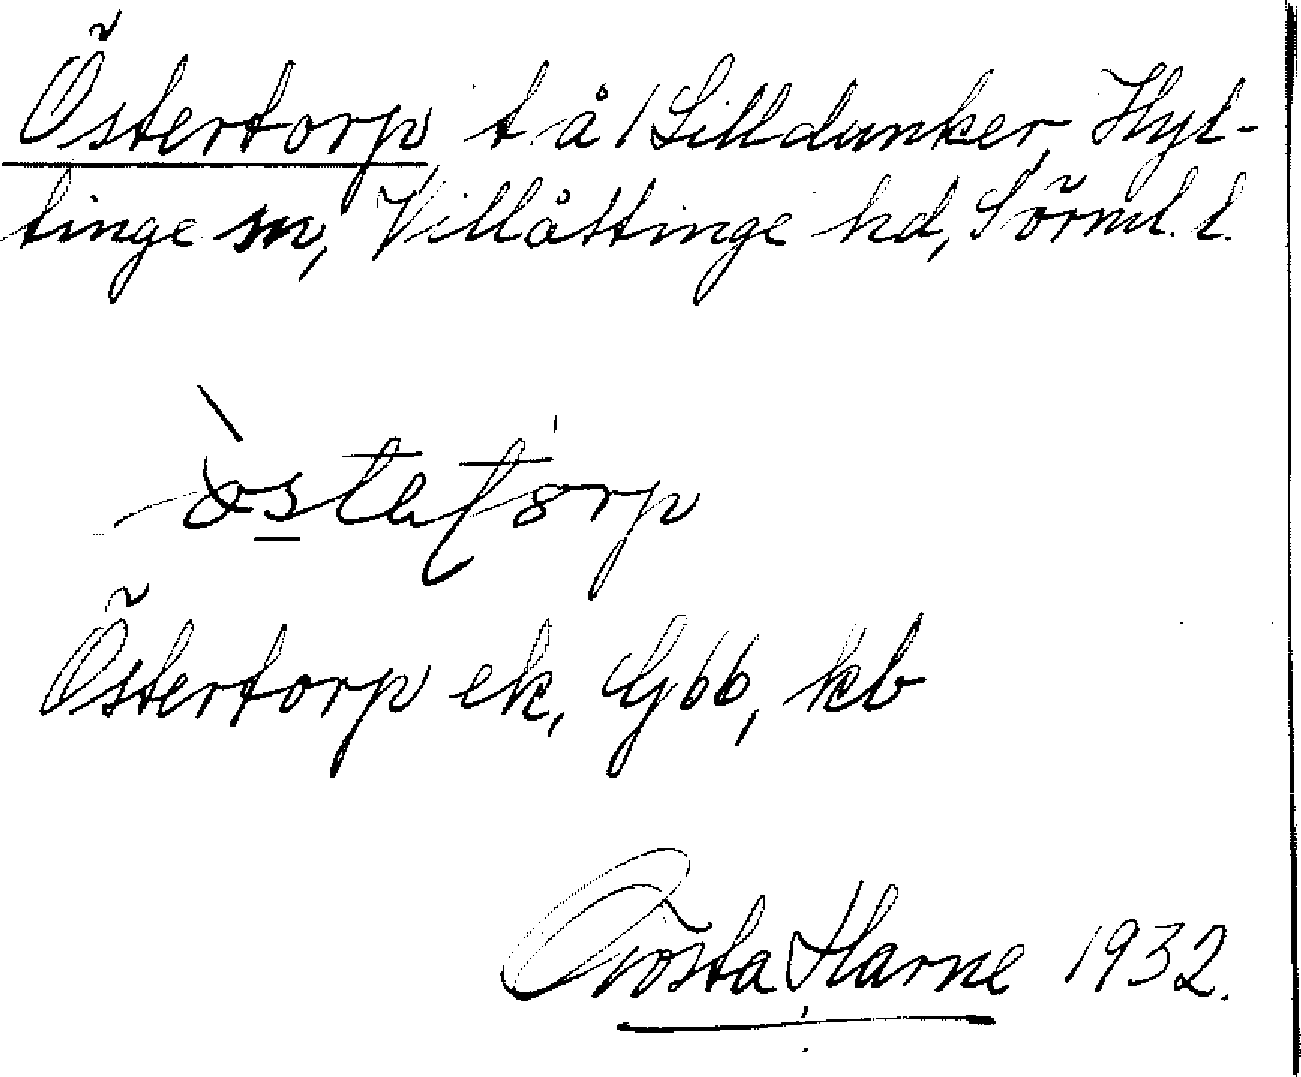 Östertorp t. å / Lilldunker, Hyl-
tinge sn, Villåttinge hd, Sörml. l.
Östertorp ek, Gbb, kb
Gösta Harne 1932.